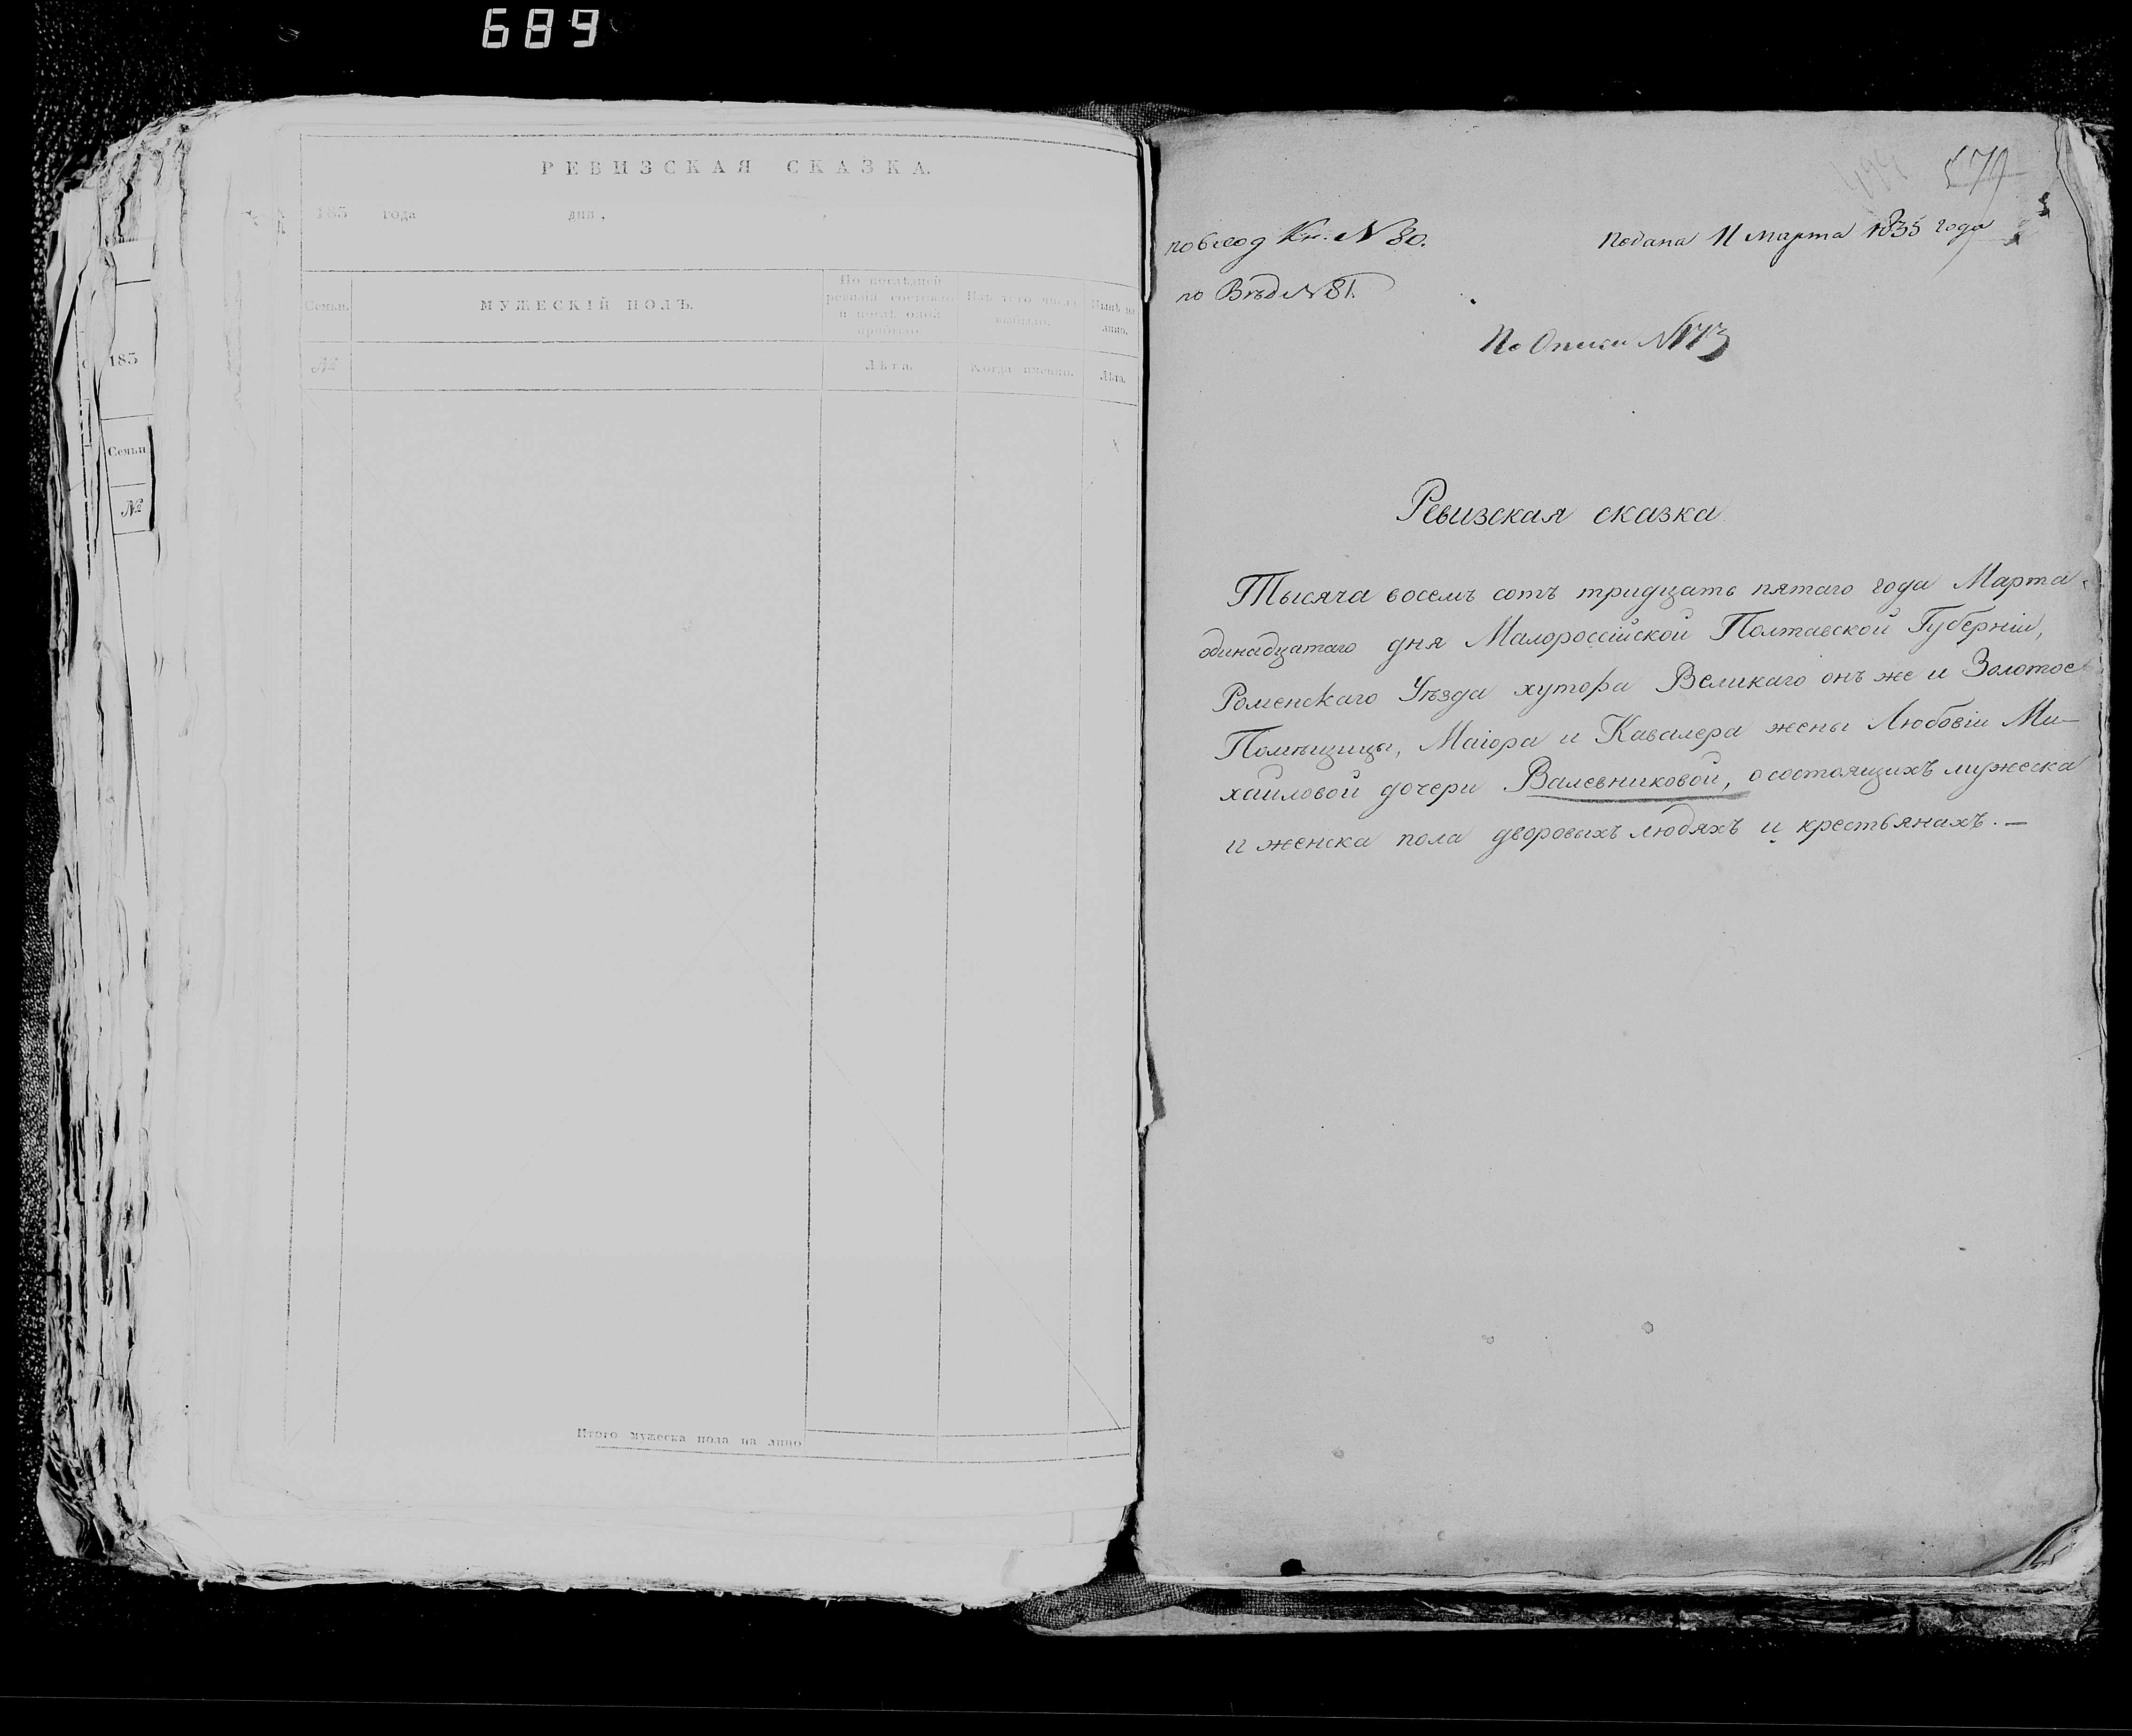 689
РЕВИЗСКАЯ СКАЗКА.
183 года дня
Семьи.
МУЖЕСКІЙ ПОЛЪ.
По послѣдней ревизіи состояло и послѣ оной прибыло.
Изъ того числа выбыло.
Нынѣ на лицо.
№
Лѣта.
Когда именно.
Лѣта.
Итого мужеска пола на лицо
183
Семьи
№
Кн: № 80.
Подана 11 марта 1835 года
по Вѣд № 81.
По Описи № 173
Ревизская сказка
Тысяча восемъ сотъ тридцать пятаго года Марта
одинадцатаго дня Малороссійской Полтавской Губерніи,
Роменскаго Уѣзда хутора Великаго онъ же и Золотое
Помѣщицы, Маіора и Кавалера жены Любовіи Ми–
хайловой дочери Валевниковой, о состоящихъ мужеска
и женска пола дворовыхъ людяхъ и крестьянахъ. —